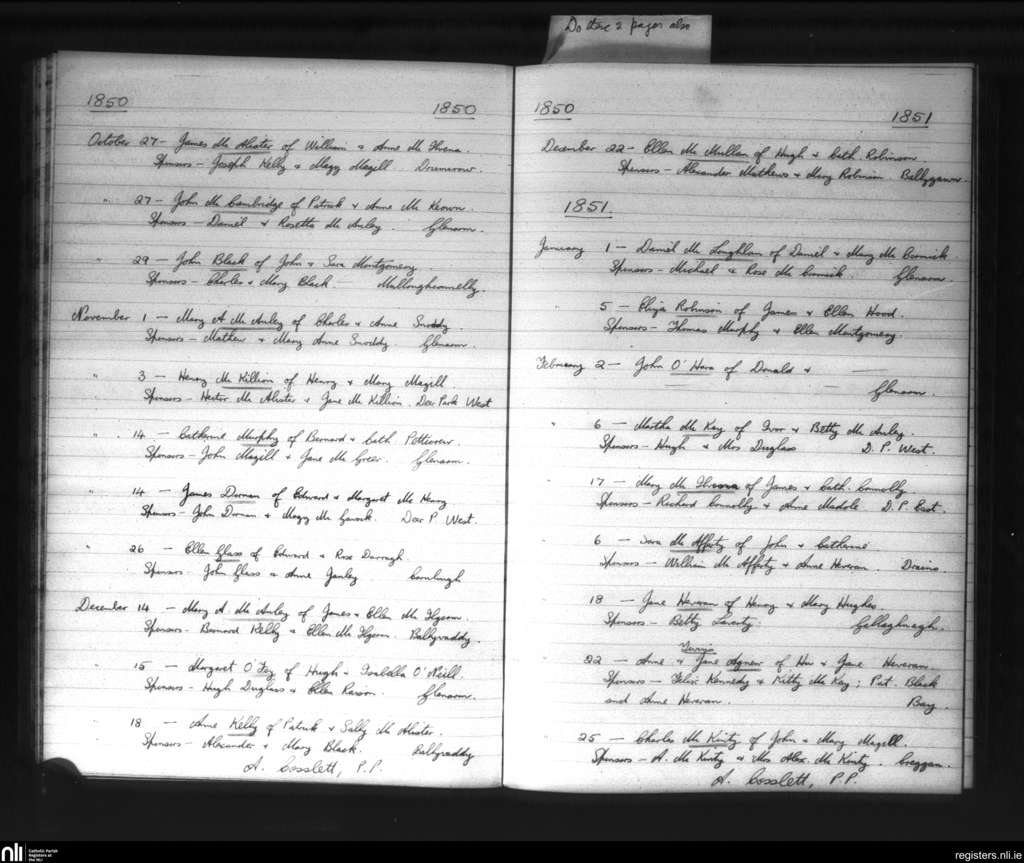 Do these 2 pages also
1850 1850
October 27 - James Mc Alister of William & Anne Mc
Sponsors - Joseph Kelly & Maggy Magill Drumcrow.
" 27 - John Mc Cambridge of Patrick & Anne Mc Keown.
Sponsors - Daniel & Rosetta Mc Auley. Glenarm.
" 29 - John Black of John & Sara Montgomery
Sponsors - Charles & Mary Black - Mulloughconnelly.
November 1 - Mary A Mc Auley of Charles & Anne Snoddy.
Sponsors - Mathew & Mary Anne Snoddy. Glenarm.
" 3 - Henry Mc Killion of Henry & Mary Magill.
Sponsors - Hector Mc Alister & Jane Mc Killion. Deer Park West
" 14 - Catherine Murphy of Bernard & Cath.
Sponsors - John Magill & Jane Mc Greer. Glenarm.
" 14 - James Dornan of Edward & Margaret Mc Henry
Sponsors - John Dornan & Maggy Mc Deer P. West.
" 26 - Ellen Glass of Edward & Rose Darragh.
Sponsors. John Glass & Anne
December 14 - Mary A. Mc Auley of James & Ellen Mc
Sponsors - Bernard Kelly & Ellen Mc Ballyvaddy.
" 15 - Margaret O' of Hugh & Isabella O'Neill.
Sponsors - Hugh Duglass & Ellen Glenarm.
18 - Anne Kelly of Patrick & Sally Mc Alister.
Sponsors - Alexander & Mary Black. Ballyvaddy
A. Cosslett, P.P.
1850 1851
December 22 - Ellen Mc Mullan of Hugh & Cath. Robinson.
Sponsors - Alexander Mathews & Mary Robinson Ballygawn.
1851.
January 1 - Daniel Mc Loughlan of Daniel & Mary Mc Cormick
Sponsors - Michael & Rose Mc Cormick. Glenarm.
" 5 - Eliza Robinson of James & Ellen Hood.
Sponsors - Thomas Murphy & Ellen Montgomery.
February 2 - John O'Hara of Donald & -
- - Glenarm.
" 6 - Martha Mc Kay of Ivor & Betty Mc Auley.
Sponsors - Hugh & Mrs Duglass D. P. West.
" 17 - Mary Mc of James & Cath. Connolly
Sponsors - Richard Connolly & Anne Madole D. P. East.
" 6 - Sara Mc Afferty of John & Catherine
Sponsors - William Mc Afferty & Anne Heveran. Drains.
" 18 - Jane Heveran of Henry & Mary Hughes.
Sponsors - Betty Laverty. Gallaghnagh.
Twins
" 22 - Anne & Jane Agnew of Hu & Jane Heveran.
Sponsors - Felix Kennedy & Kitty Mc Kay; Pat. Black
and Anne Heveran. Bay.
" 25 - Charles Mc Kinty of John & Mary Magill.
Sponsors - A. Mc Kinty & Mrs Alex. Mc Kinty. Creggan.
A. Cosslett, P.P.
nli Catholic Parish
Registers at
the NLI
registers.nli.ie